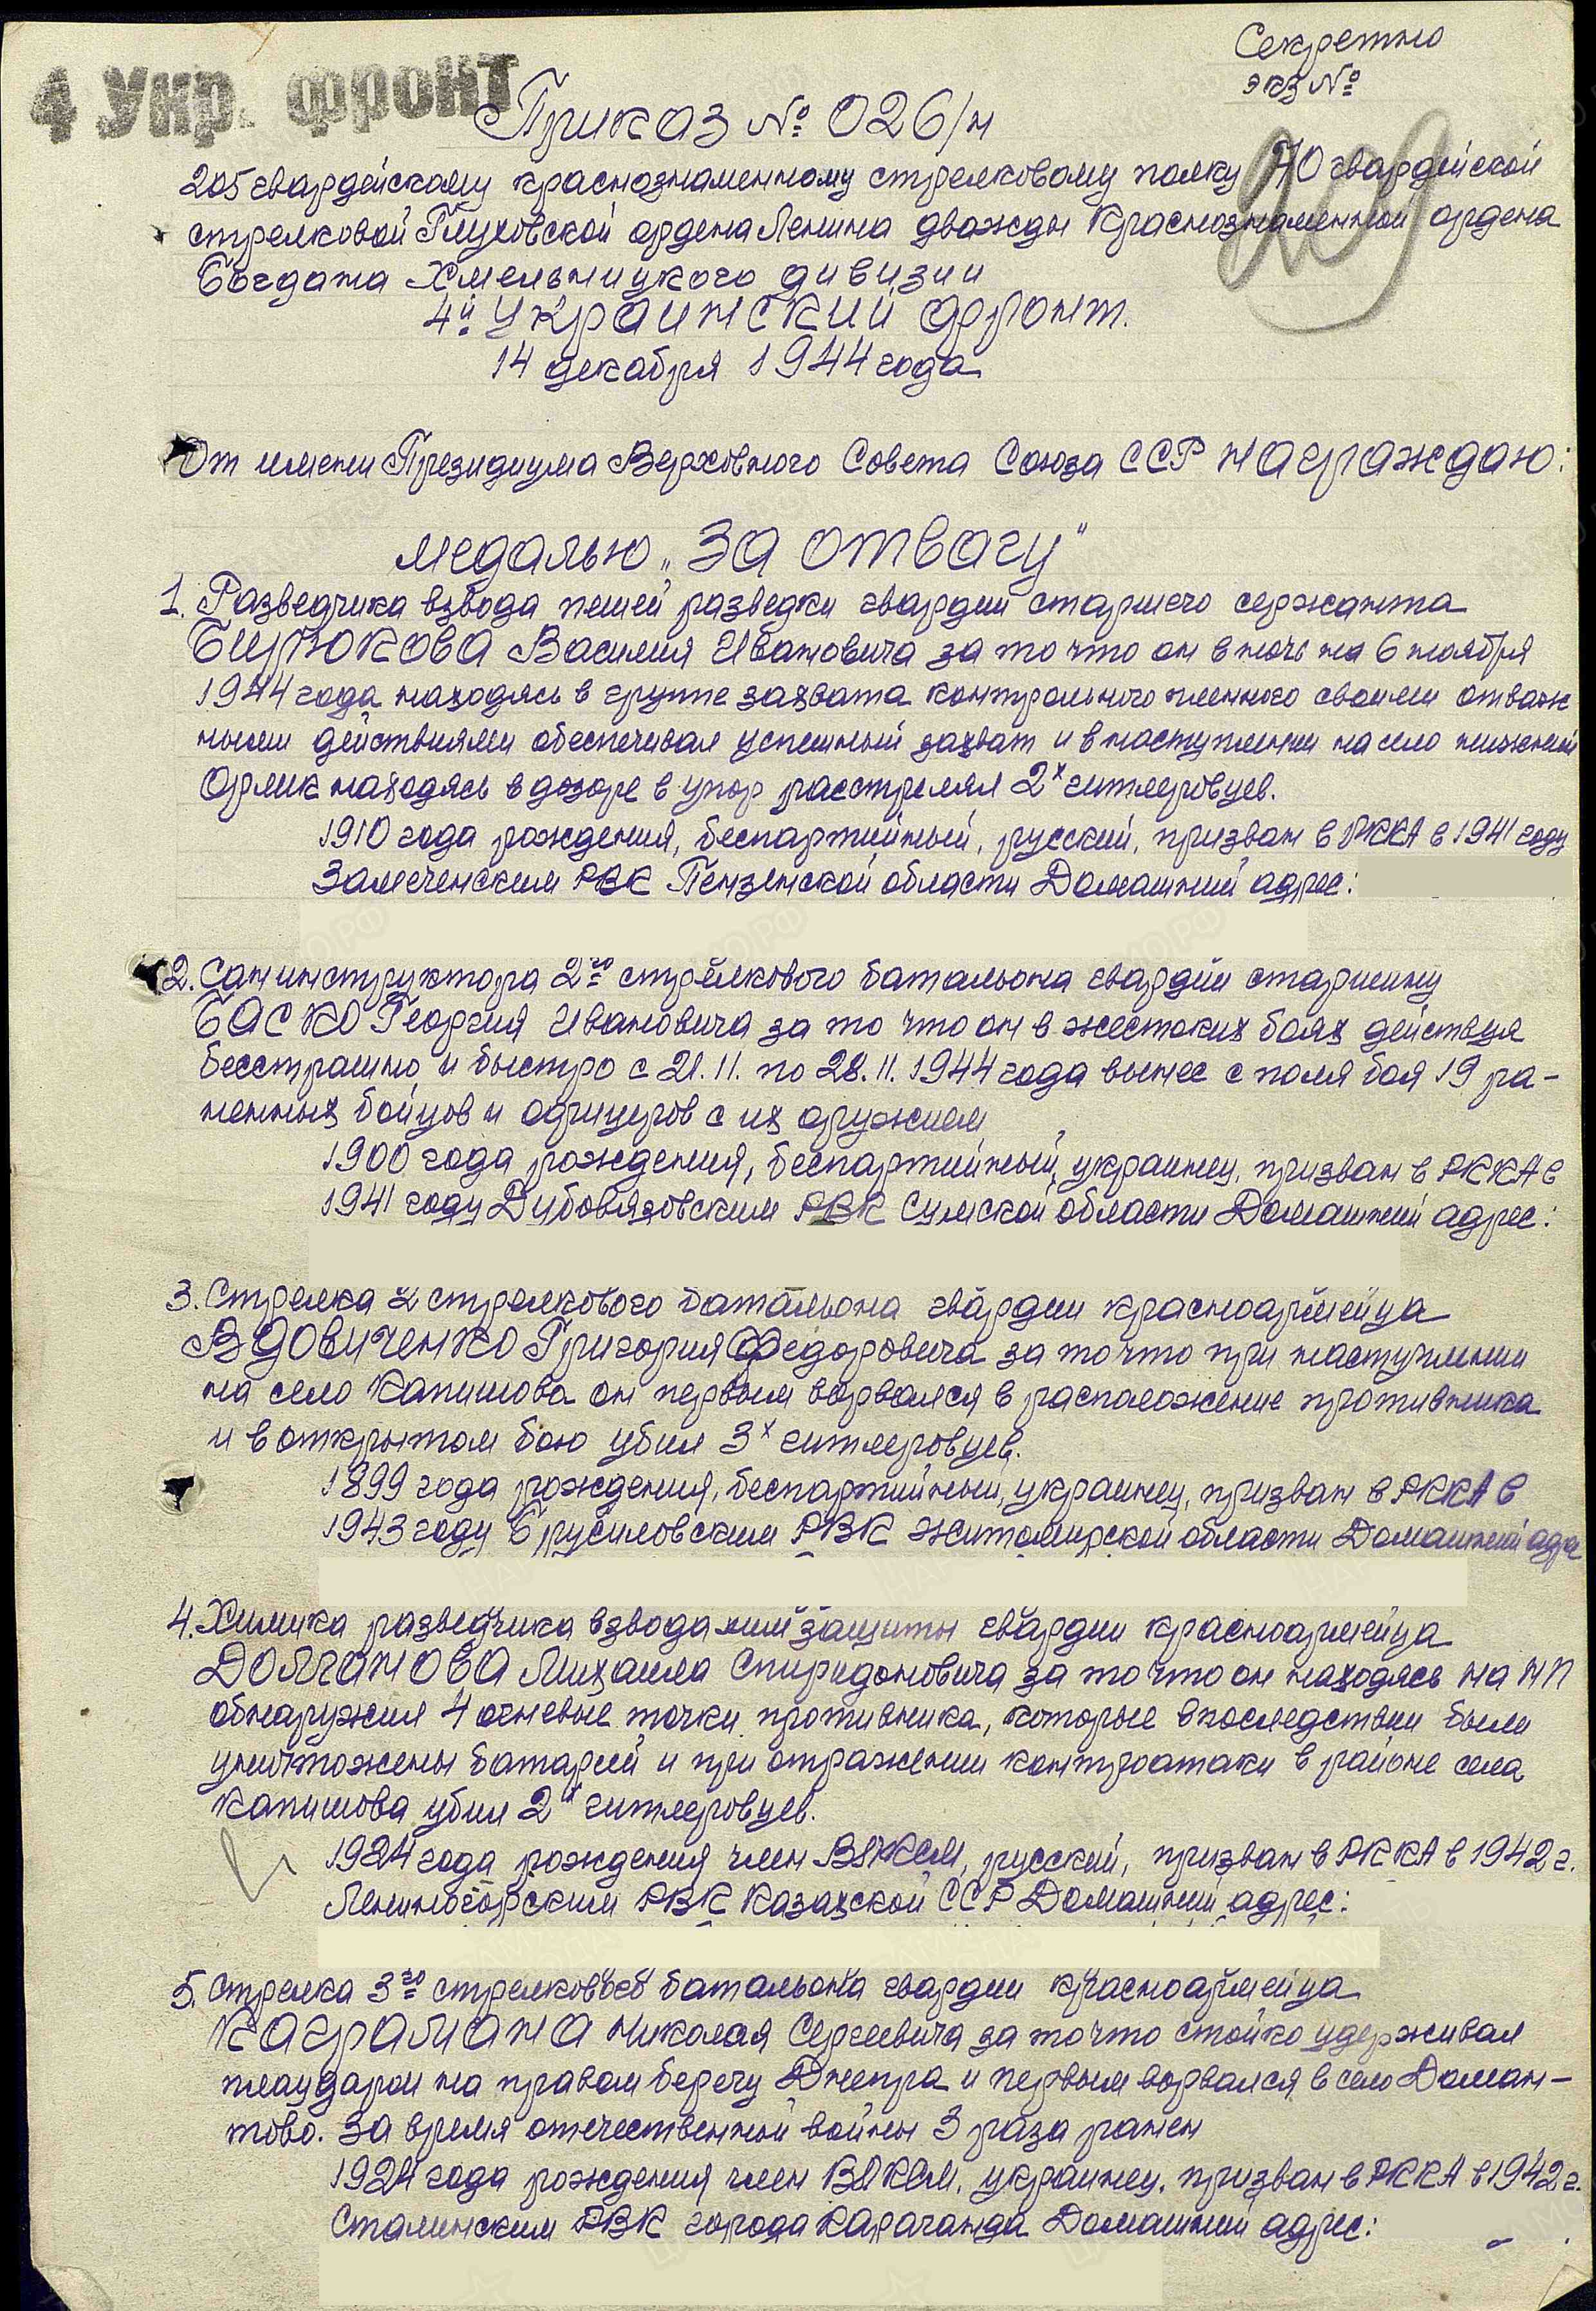 Секретно
экз №
4 Укр. фронт
Приказ № 026/н
209
205 гвардейскому краснознаменному стрелковому полку 70 гвардейской
стрелковой Глуховской ордена Ленина дважды Краснознаменной ордена
Богдана Хмельницкого дивизии
4й Украинский фронт.
14 декабря 1944 года
От имени Президиума Верховного Совета Союза ССР награждаю:
медалью „За отвагу"
1. Разведчика взвода пешей разведки гвардии старшего сержанта
Бирюкова Василия Ивановича за то что он в ночь на 6 ноября
1944 года находясь в группе захвата контрольного пленного своими отваж
ными действиями обеспечивал успешный захват и в наступлении на село нижний
Орлик находясь в дозоре в упор расстрелял 2х гитлеровцев.
1910 года рождения, беспартийный, русский, призван в РККА в 1941 году
Земеченским РВК Пензенской области Домашний адрес:
2. Санинструктора 2го стрелкового батальона гвардии старшину
Баско Георгия Ивановича за то что он в жестоких боях действуя
бесстрашно и быстро с 21.11. по 28.11.1944 года вынес с поля боя 19 ра-
ненных бойцов и офицеров с их оружием
1900 года рождения, беспартийный, украинец, призван в РККА в
1941 году Дубовязовским РВК Сумской области Домашний адрес:
3. Стрелка 2 стрелкового батальона гвардии красноармейца
Вдовиченко Григория Федоровича за то что при наступлении
на село Капишова он первым ворвался в расположение противника
и в открытом бою убил 3х гитлеровцев.
1899 года рождения, беспартийный, украинец, призван в РККА в
1943 году Брусиловским РВК Житомирской области Домашний адре
4. Химика разведчика взвода химзащиты гвардии красноармейца
Долганова Михаила Спиридоновича за то что он находясь на НП
обнаружил 4 огневые точки противника, которые впоследствии были
уничтожены батареей и при отражении контратаки в районе села
Капишова убил 2х гитлеровцев.
1924 года рождения член ВЛКСМ, русский, призван в РККА в 1942 г.
Лениногорским РВК Казахской ССР Домашний адрес:
5. Стрелка 3го стрелкового батальона гвардии красноармейца
Каграмана Николая Сергеевича за то что стойко удерживал
плацдарм на правом берегу Днепра и первым ворвался в село Доман-
тово. За время отечественной войны 3 раза ранен
1924 года рождения член ВЛКСМ, украинец, призван в РККА в 1942 г.
Сталинским РВК города Караганда Домашний адрес: